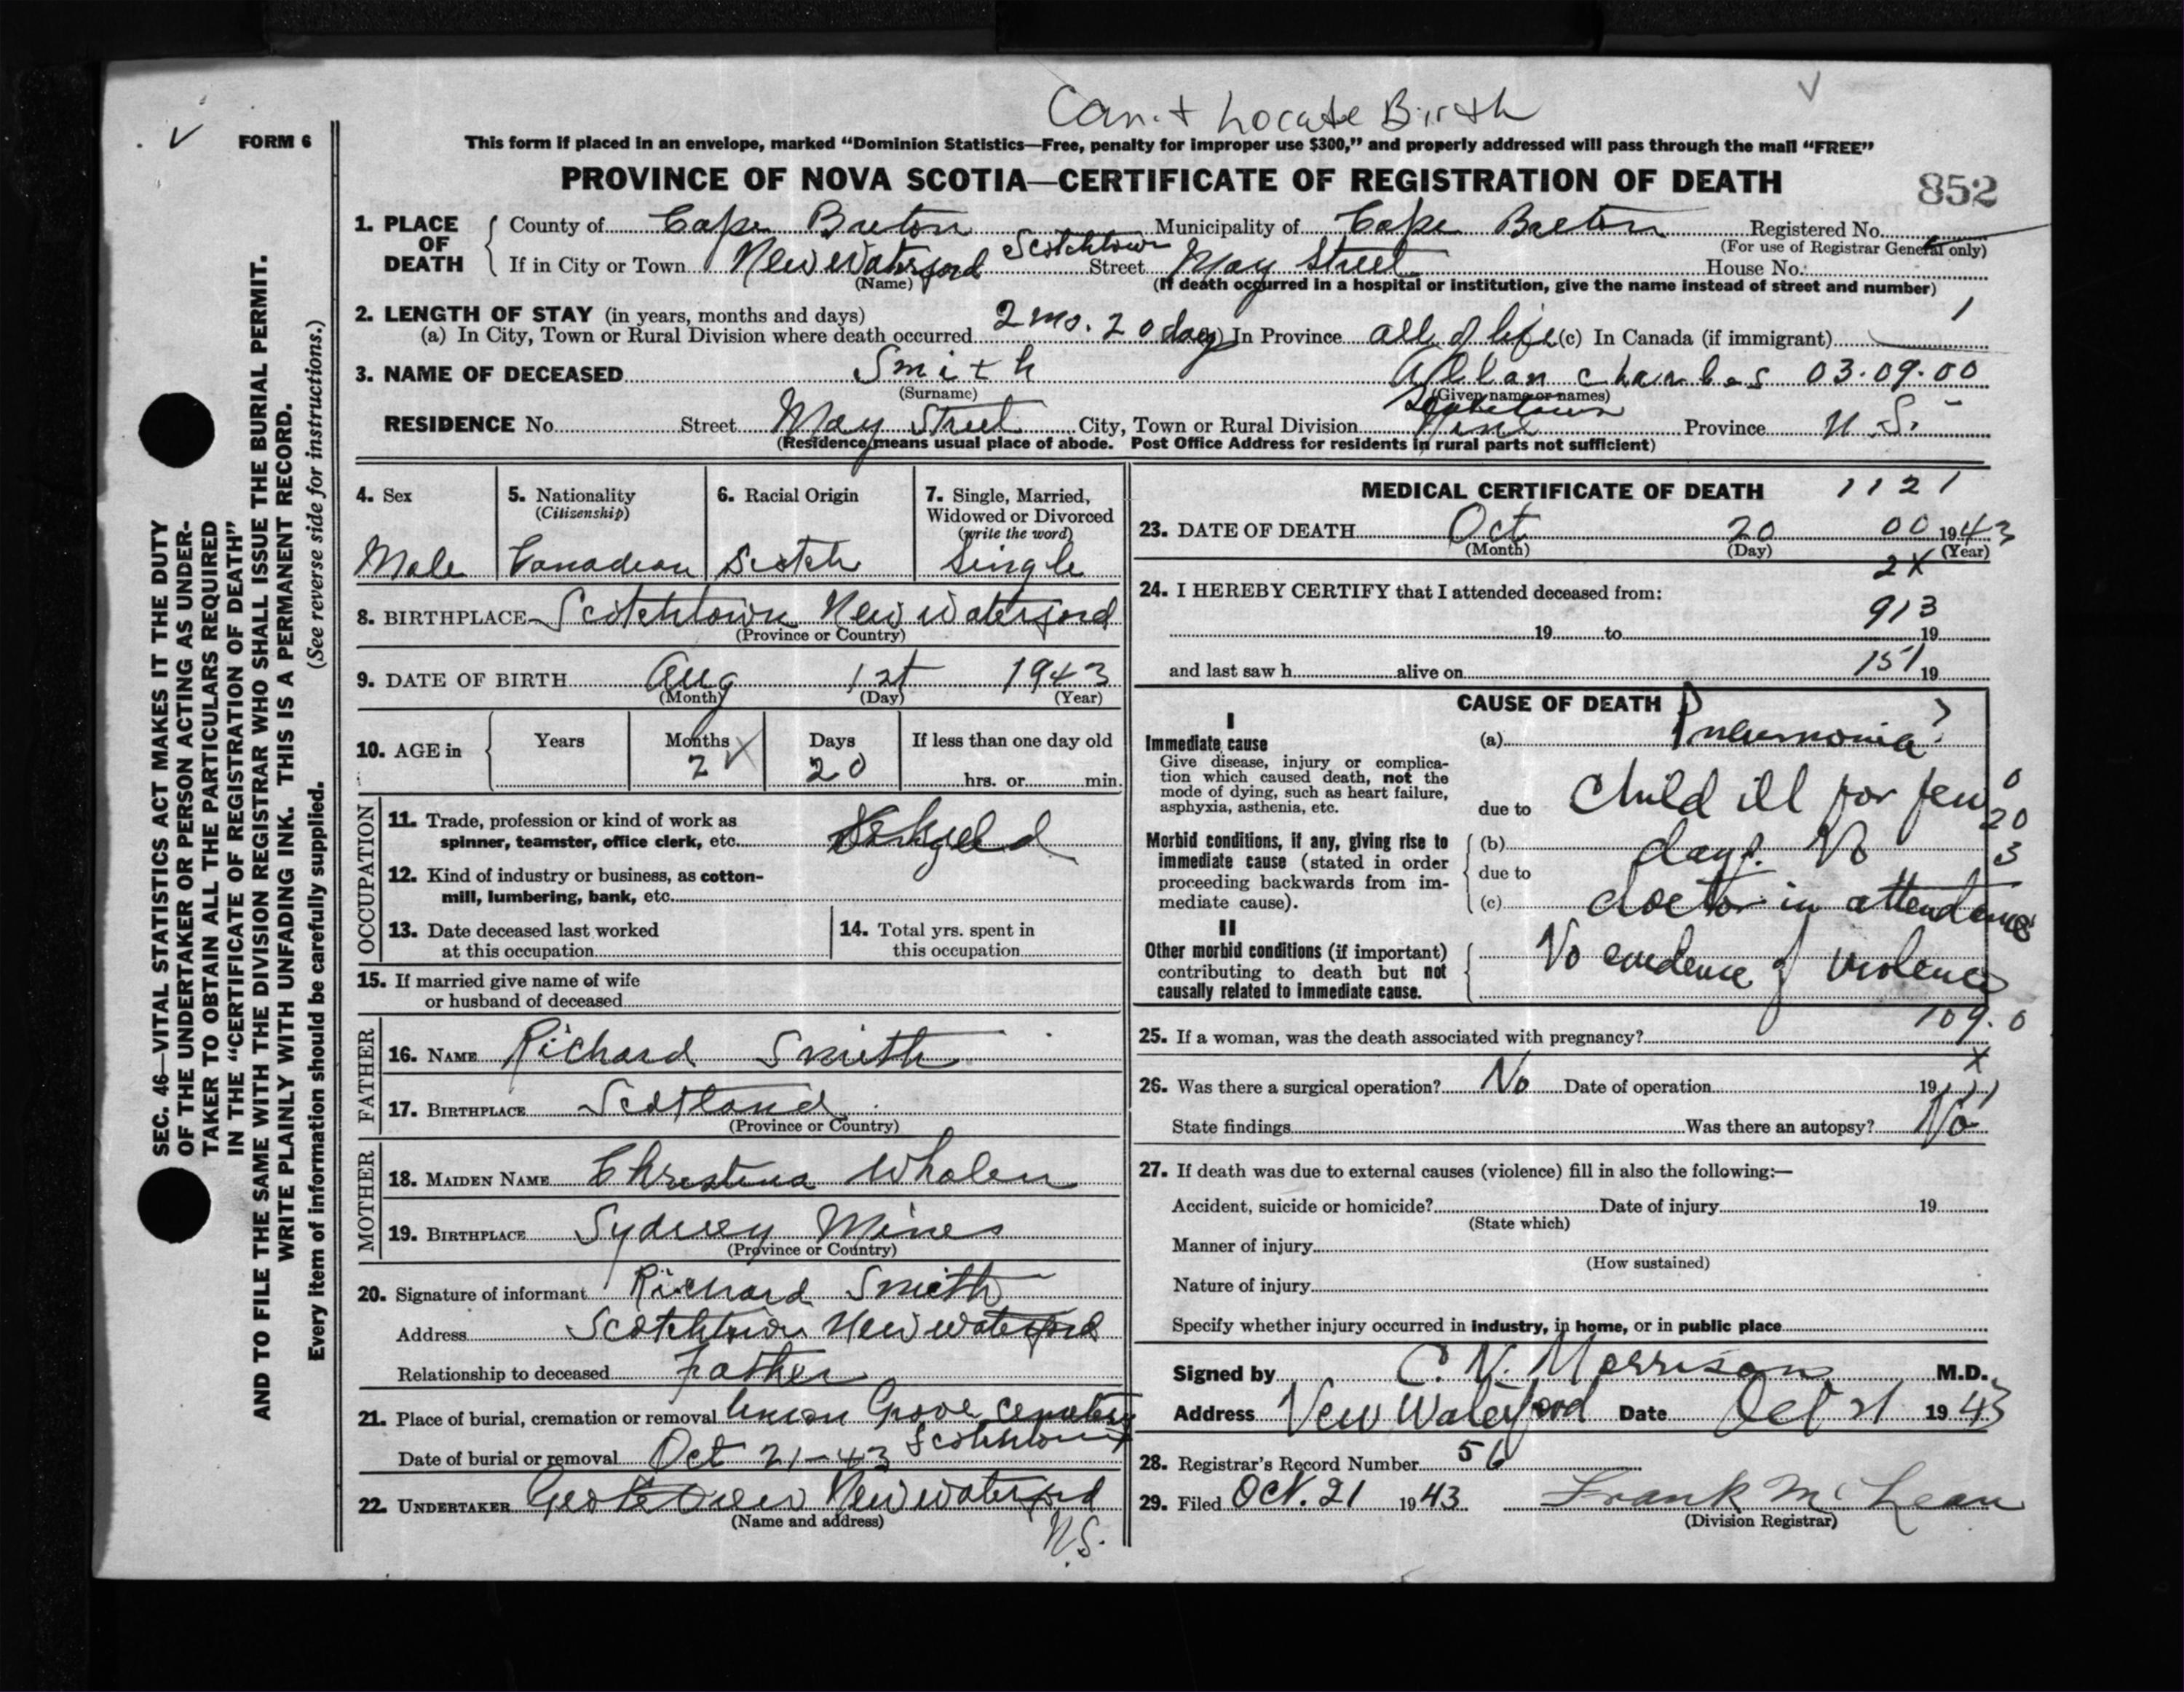 Can't Locate Birth
FORM 6
This form if placed in an envelope, marked "Dominion Statistics—Free, penalty for improper use $300," and properly addressed will pass through the mail "FREE"
PROVINCE OF NOVA SCOTIA—CERTIFICATE OF REGISTRATION OF DEATH
852
1. PLACE OF DEATH
County of Cape Breton Municipality of Cape Breton Registered No.
(For use of Registrar General only)
If in City or Town New Waterford Scotchtown Street May Street House No.
(Name) (If death occurred in a hospital or institution, give the name instead of street and number)
2. LENGTH OF STAY (in years, months and days)
(a) In City, Town or Rural Division where death occurred 2 mo. 20 days In Province all of life (c) In Canada (if immigrant) 1
3. NAME OF DECEASED Smith Allan Charles 03.09.00
(Surname) (Given name or names)
RESIDENCE No. Street May Street City, Town or Rural Division Province N.S.
(Residence means usual place of abode. Post Office Address for residents in rural parts not sufficient)
4. Sex
Male
5. Nationality
(Citizenship)
Canadian
6. Racial Origin
Scotch
7. Single, Married,
Widowed or Divorced
(write the word)
Single
8. BIRTHPLACE Scotchtown New Waterford
(Province or Country)
9. DATE OF BIRTH Aug 1st 1943
(Month) (Day) (Year)
10. AGE in
Years Months Days If less than one day old
2 20 hrs. or min.
OCCUPATION
11. Trade, profession or kind of work as
spinner, teamster, office clerk, etc.
12. Kind of industry or business, as cotton-
mill, lumbering, bank, etc.
13. Date deceased last worked
at this occupation
14. Total yrs. spent in
this occupation
15. If married give name of wife
or husband of deceased
FATHER
16. NAME Richard Smith
17. BIRTHPLACE Scotland
(Province or Country)
MOTHER
18. MAIDEN NAME Christena Whalen
19. BIRTHPLACE Sydney Mines
(Province or Country)
20. Signature of informant Richard Smith
Address Scotchtown New Waterford
Relationship to deceased Father
21. Place of burial, cremation or removal Union Grove Cemetery
Scotchtown
Date of burial or removal Oct 21-43
22. UNDERTAKER New Waterford
(Name and address)
N.S.
MEDICAL CERTIFICATE OF DEATH 1121
23. DATE OF DEATH Oct 20 00 1943
(Month) (Day) (Year)
2X
24. I HEREBY CERTIFY that I attended deceased from:
913
19 to 19
and last saw h alive on 151 19
CAUSE OF DEATH
I
Immediate cause
Give disease, injury or complica-
tion which caused death, not the
mode of dying, such as heart failure,
asphyxia, asthenia, etc.
(a) Pneumonia?
due to Child ill for few
0
20
3
Morbid conditions, if any, giving rise to
immediate cause (stated in order
proceeding backwards from im-
mediate cause).
(b) days. No
due to
(c) doctor in attendance
II
Other morbid conditions (if important)
contributing to death but not
causally related to immediate cause.
No evidence of violence
109.0
25. If a woman, was the death associated with pregnancy?
X
26. Was there a surgical operation? No Date of operation 19
State findings Was there an autopsy? No
27. If death was due to external causes (violence) fill in also the following:—
Accident, suicide or homicide? Date of injury 19
(State which)
Manner of injury
(How sustained)
Nature of injury
Specify whether injury occurred in industry, in home, or in public place
Signed by C. N. Morrison M.D.
Address New Waterford Date Oct 21 1943
28. Registrar's Record Number 56
29. Filed Oct. 21 1943 Frank McLean
(Division Registrar)
SEC. 46—VITAL STATISTICS ACT MAKES IT THE DUTY
OF THE UNDERTAKER OR PERSON ACTING AS UNDER-
TAKER TO OBTAIN ALL THE PARTICULARS REQUIRED
IN THE "CERTIFICATE OF REGISTRATION OF DEATH"
AND TO FILE THE SAME WITH THE DIVISION REGISTRAR WHO SHALL ISSUE THE BURIAL PERMIT.
WRITE PLAINLY WITH UNFADING INK. THIS IS A PERMANENT RECORD.
Every item of information should be carefully supplied. (See reverse side for instructions.)